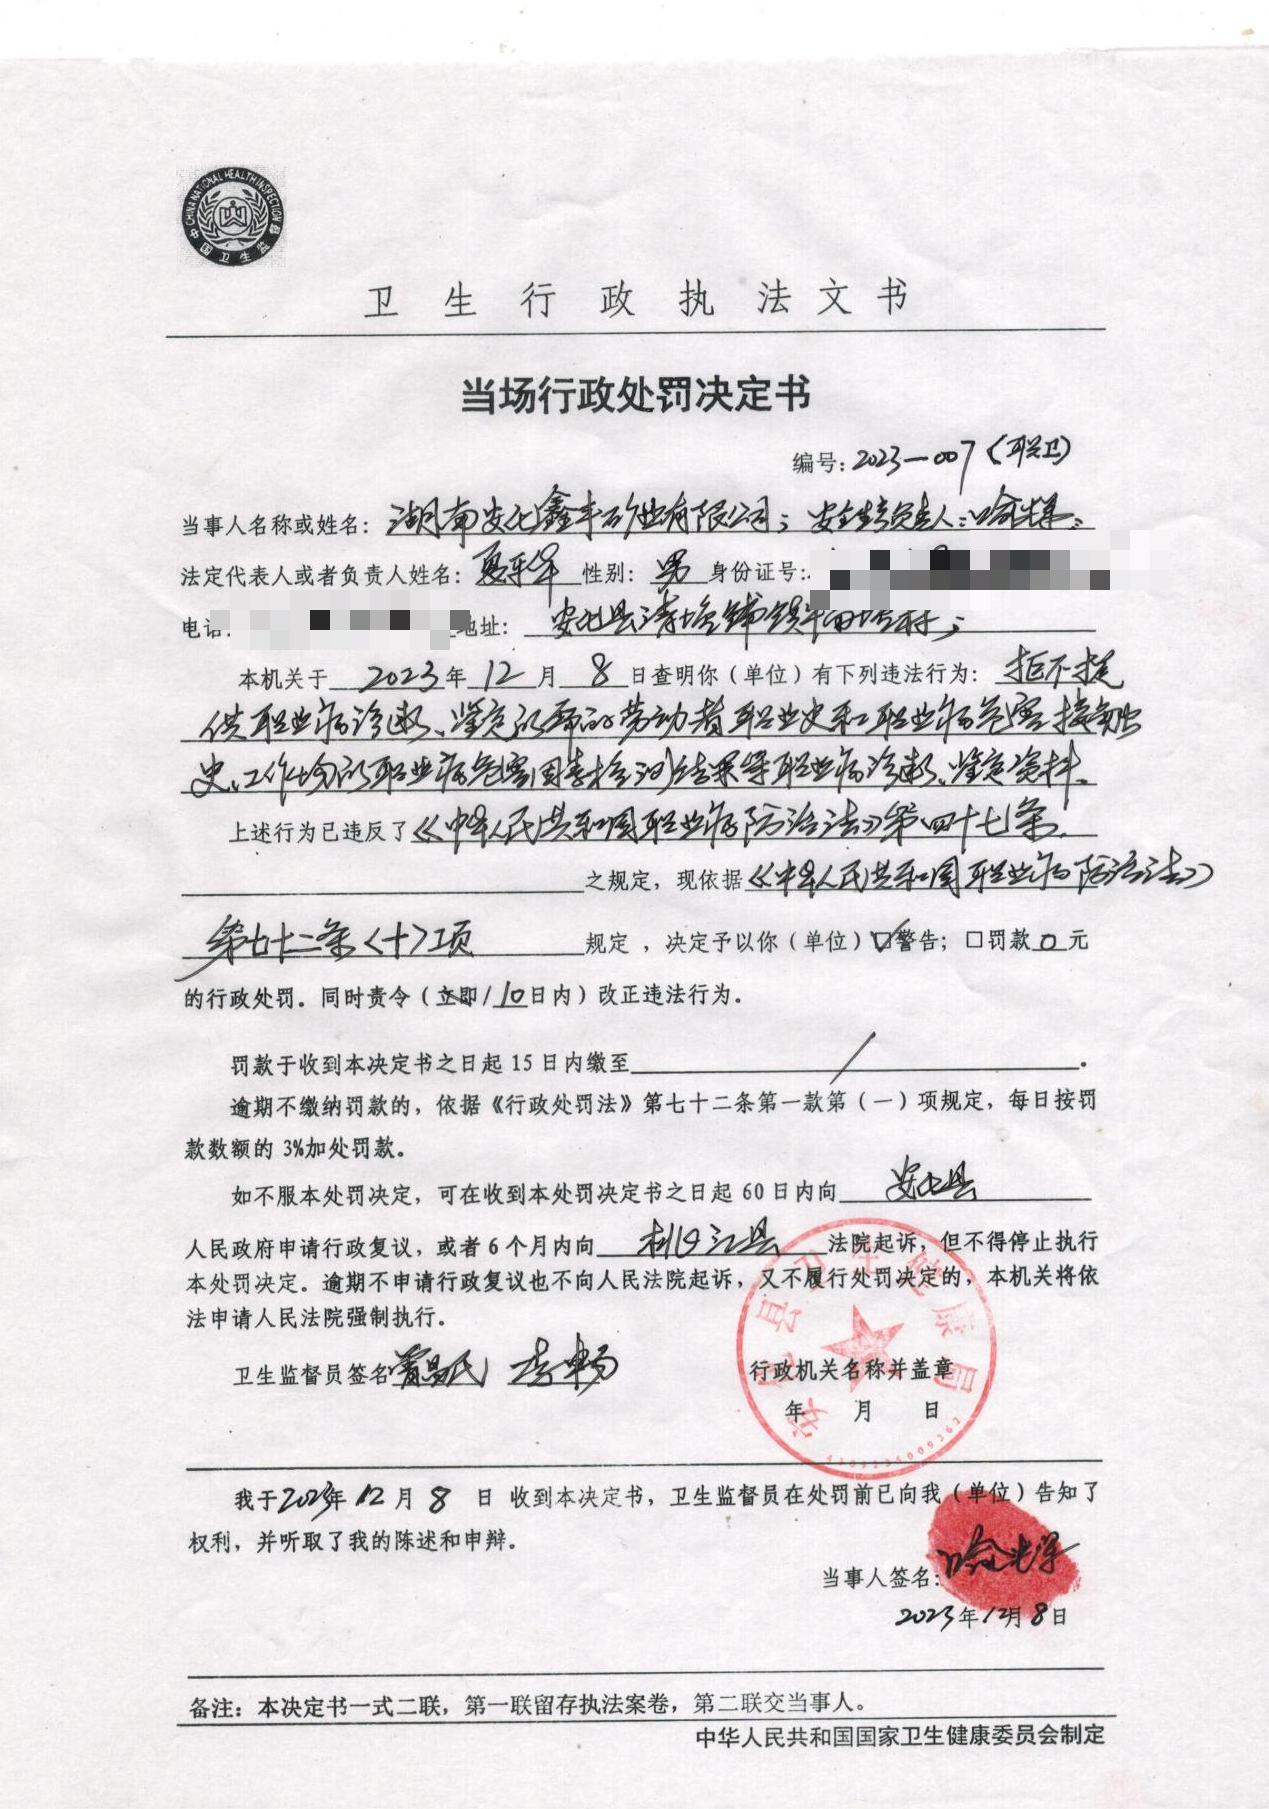 CHINA NATIONAL HEALTH INSPECTION
中国卫生监督
卫生行政执法文书
当场行政处罚决定书
编号：2023—007（职卫）
当事人名称或姓名：湖南安化鑫丰矿业有限公司；安全生产负责人：喻光辉；
法定代表人或者负责人姓名：夏乐华 性别：男 身份证号：
电话： 地址：安化县清塘铺镇 村；
本机关于 2023 年 12 月 8 日查明你（单位）有下列违法行为：拒不提
供职业病诊断、鉴定所需的劳动者职业史和职业病危害接触
史、工作场所职业病危害因素检测结果等职业病诊断、鉴定资料。
上述行为已违反了《中华人民共和国职业病防治法》第四十七条
之规定，现依据《中华人民共和国职业病防治法》
第七十二条〈十〉项 规定，决定予以你（单位）☑警告；□罚款 0 元
的行政处罚。同时责令（立即/10日内）改正违法行为。
罚款于收到本决定书之日起 15 日内缴至 / 。
逾期不缴纳罚款的，依据《行政处罚法》第七十二条第一款第（一）项规定，每日按罚
款数额的 3%加处罚款。
如不服本处罚决定，可在收到本处罚决定书之日起 60 日内向 安化县
人民政府申请行政复议，或者 6 个月内向 桃江县 法院起诉，但不得停止执行
本处罚决定。逾期不申请行政复议也不向人民法院起诉，又不履行处罚决定的，本机关将依
法申请人民法院强制执行。
卫生监督员签名 李畅
安化县卫生健康局
行政机关名称并盖章
年 月 日
我于2023年 12 月 8 日 收到本决定书，卫生监督员在处罚前已向我（单位）告知了
权利，并听取了我的陈述和申辩。
当事人签名：喻光辉
2023年12月8日
备注：本决定书一式二联，第一联留存执法案卷，第二联交当事人。
中华人民共和国国家卫生健康委员会制定